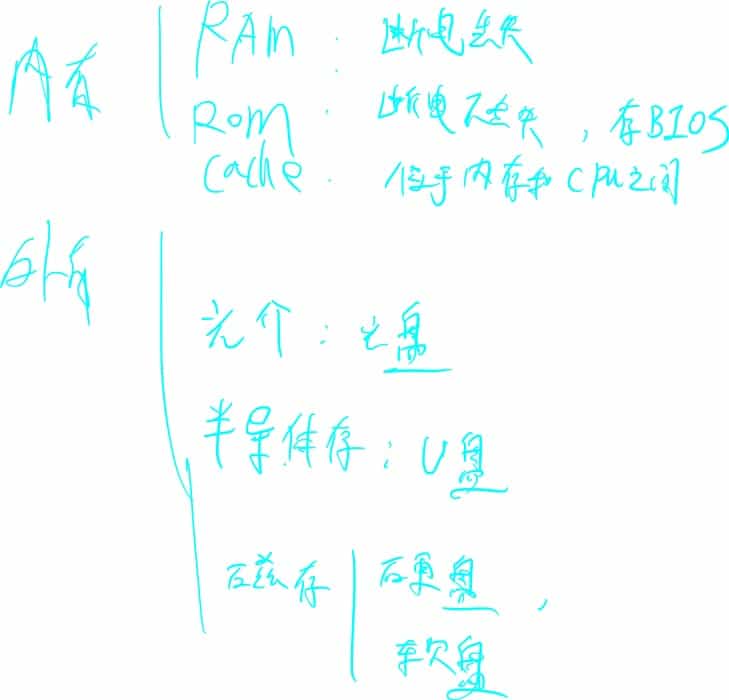 内存
RAM: 断电丢失
ROM: 断电不丢失, 存BIOS
Cache: 位于内存和CPU之间
外存
光介: 光盘
半导体存: U盘
磁存
硬盘,
软盘